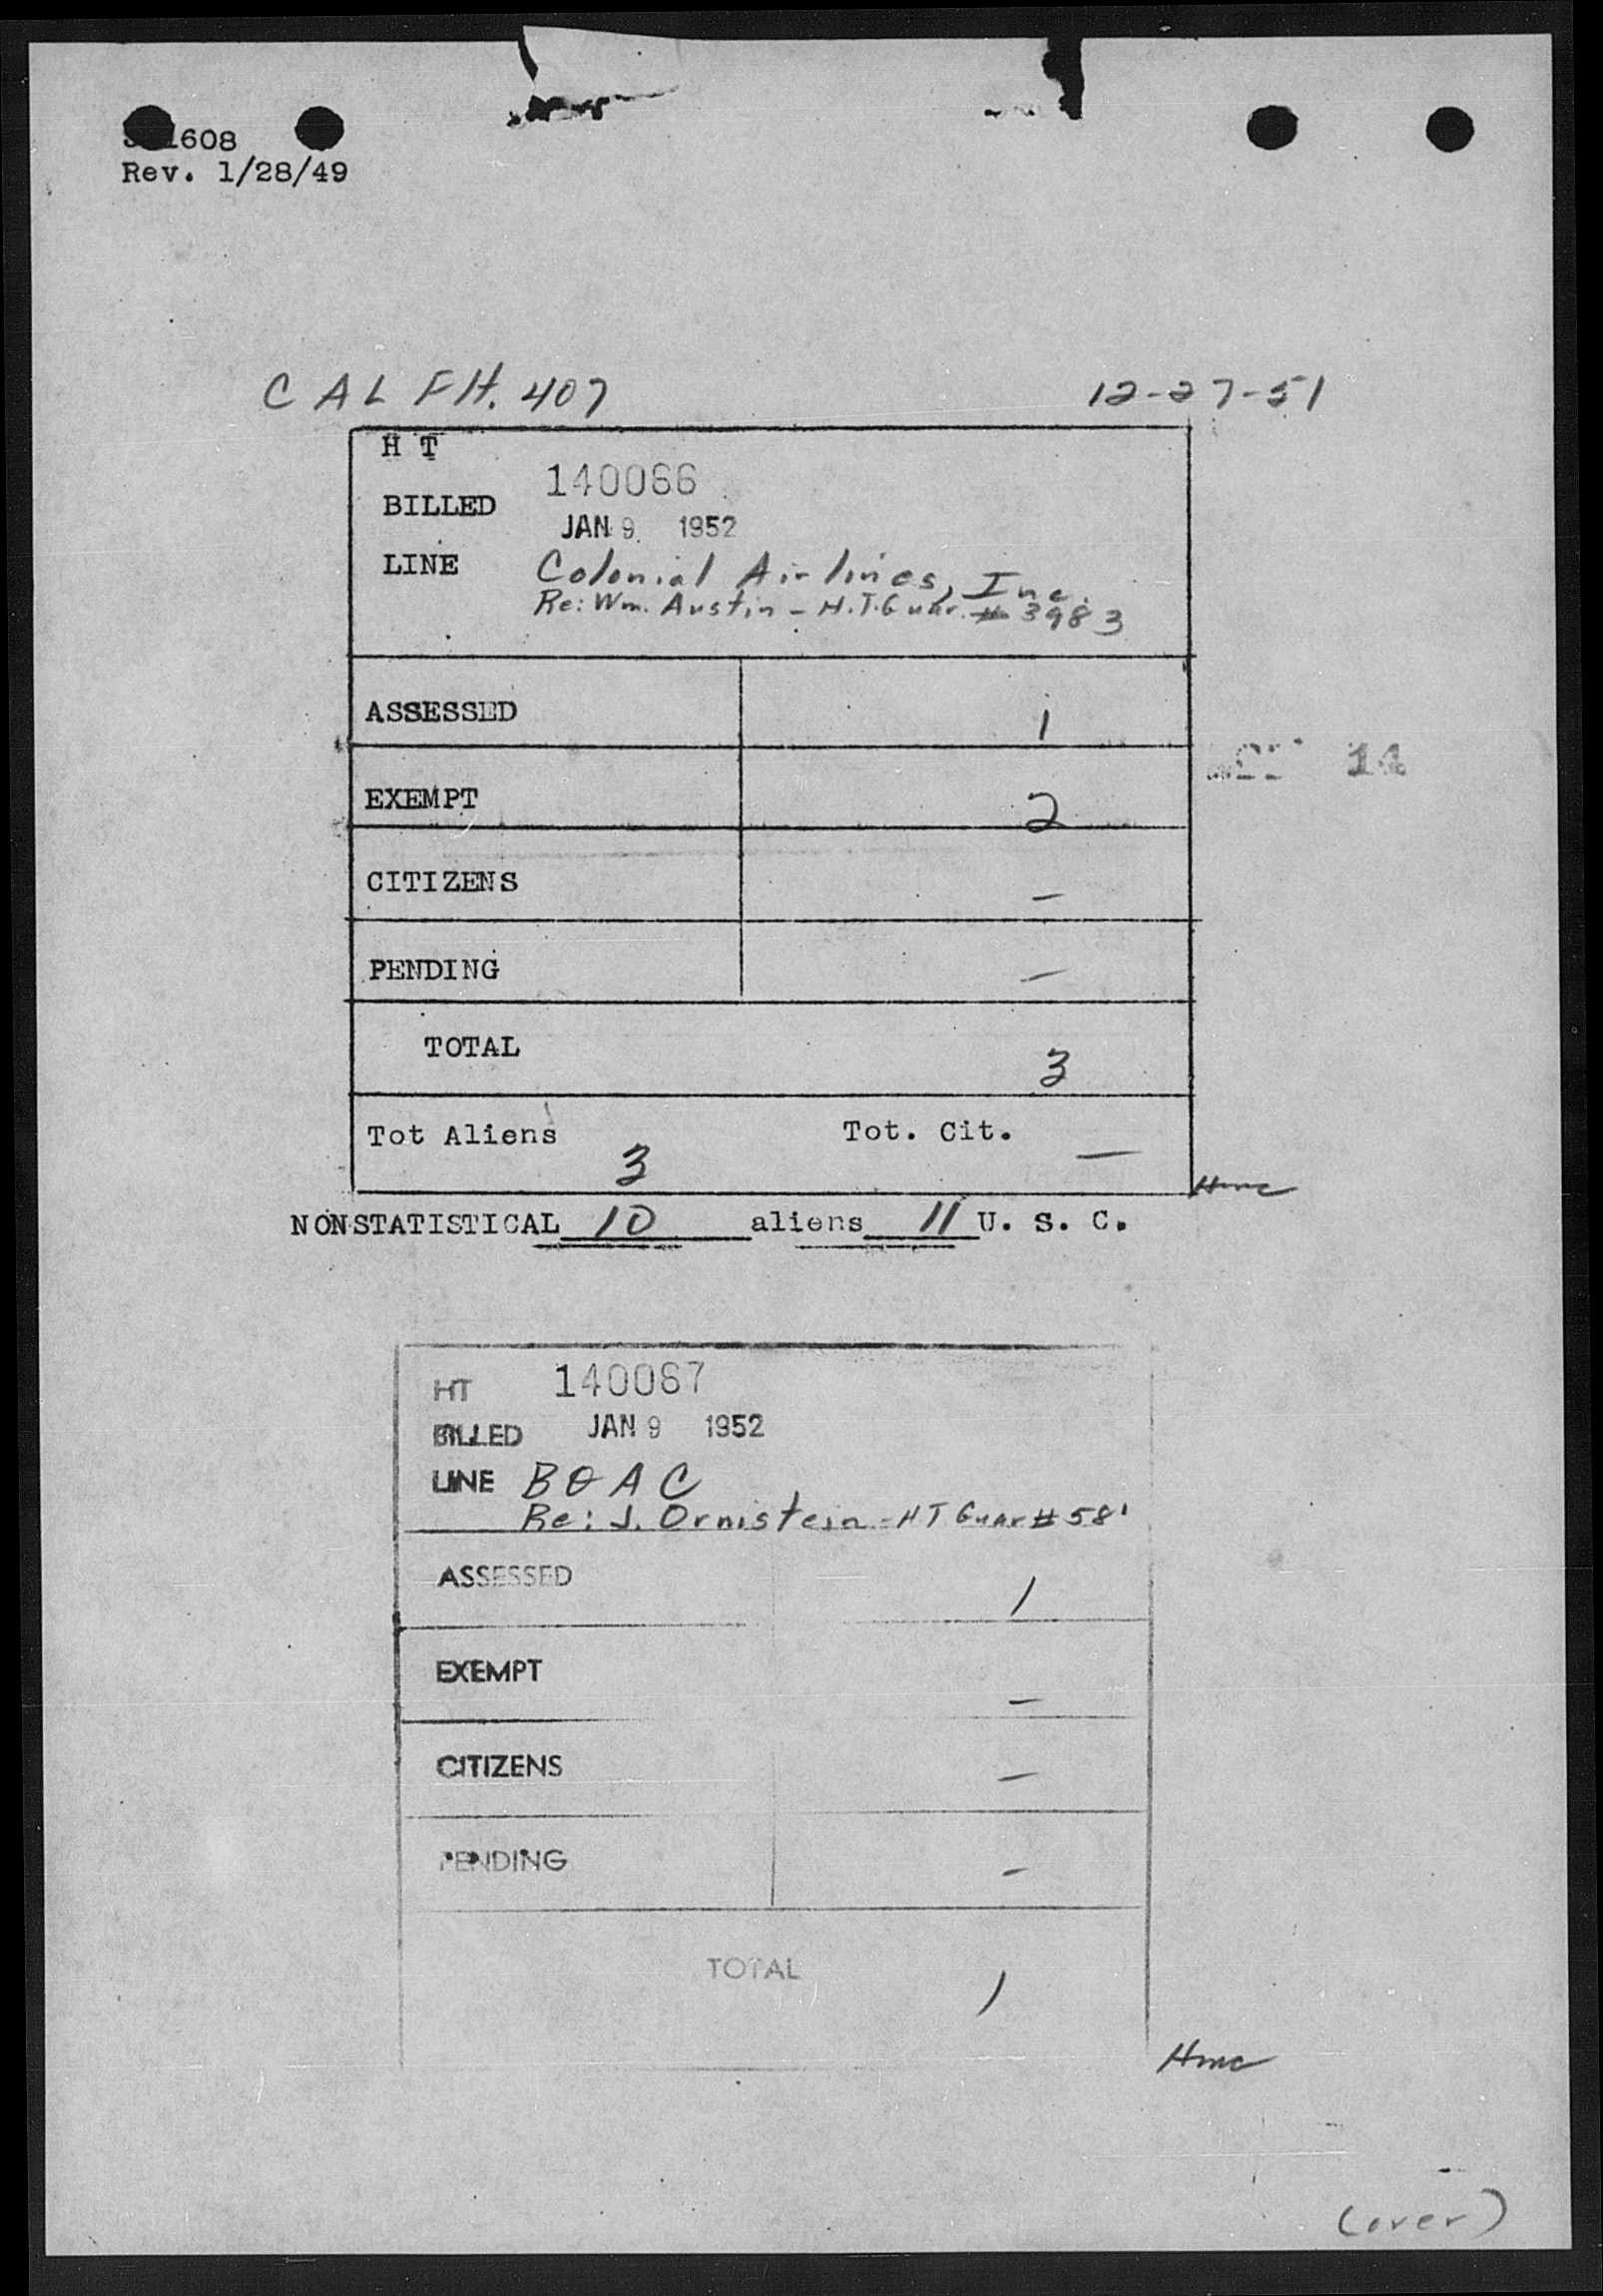 1608
Rev. 1/28/49
CAL FH. 407 12-27-51
H T
140066
BILLED
JAN 9. 1952
LINE Colonial Airlines, Inc.
Re: Wm. Austin - H.T. Guar. # 3983
ASSESSED 1
14
EXEMPT 2
CITIZENS –
PENDING –
TOTAL 3
Tot Aliens 3 Tot. Cit. –
Hmc
NONSTATISTICAL 10 aliens 11 U. S. C.
HT 140067
BILLED JAN 9 1952
LINE BOAC
Re: J. Ornistein - HT Guar # 581
ASSESSED 1
EXEMPT –
CITIZENS –
PENDING –
TOTAL 1
Hmc
(over)